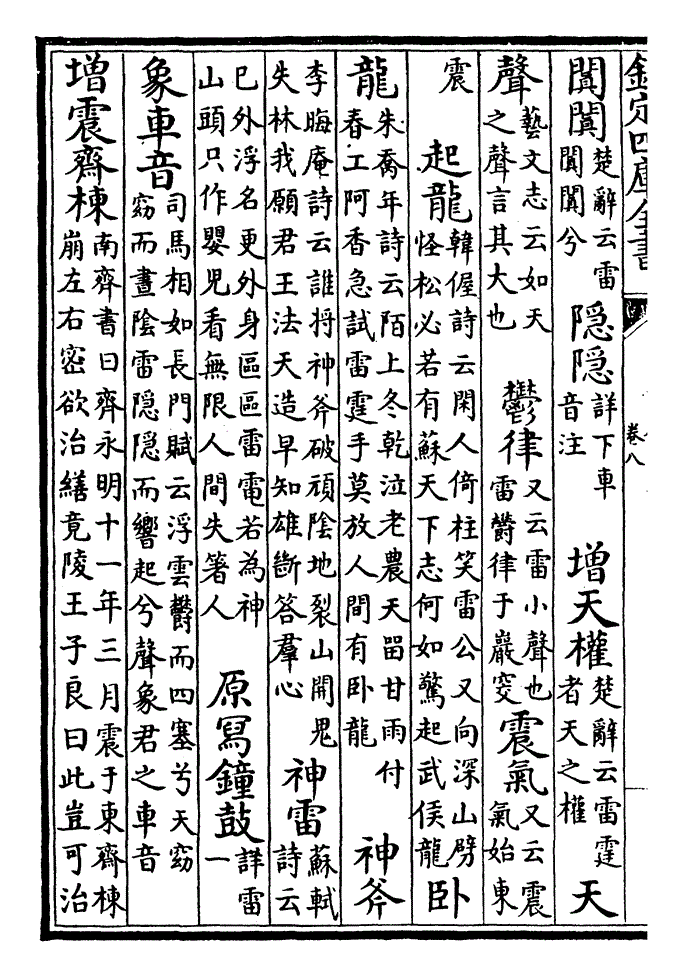 欽定四庫全書
卷八
闐闐楚辭云雷闐闐兮 隠隠詳下車音注 增天權楚辭云雷霆者天之權 天
聲藝文志云如天之聲言其大也 鬱律又云雷小聲也雷欝律于巖窔 震氣又云震氣始東
震 起龍韓偓詩云閑人倚柱笑雷公又向深山劈怪松必若有蘇天下志何如驚起武侯龍 卧
龍朱喬年詩云陌上冬乾泣老農天畱甘雨付春工阿香急試雷霆手莫放人間有卧龍 神斧
李晦庵詩云誰将神斧破頑陰地裂山開鬼失林我願君王法天造早知雄斷答羣心 神雷蘇軾詩云
已外浮名更外身區區雷電若為神山頭只作嬰兒看無限人間失箸人 原冩鐘鼓詳雷一
象車音司馬相如長門賦云浮雲欝而四塞兮天窈窈而晝陰雷隠隠而響起兮聲象君之車音
增震齋棟南齊書曰齊永明十一年三月震于東齋棟崩左右宻欲治繕竟陵王子良曰此豈可治